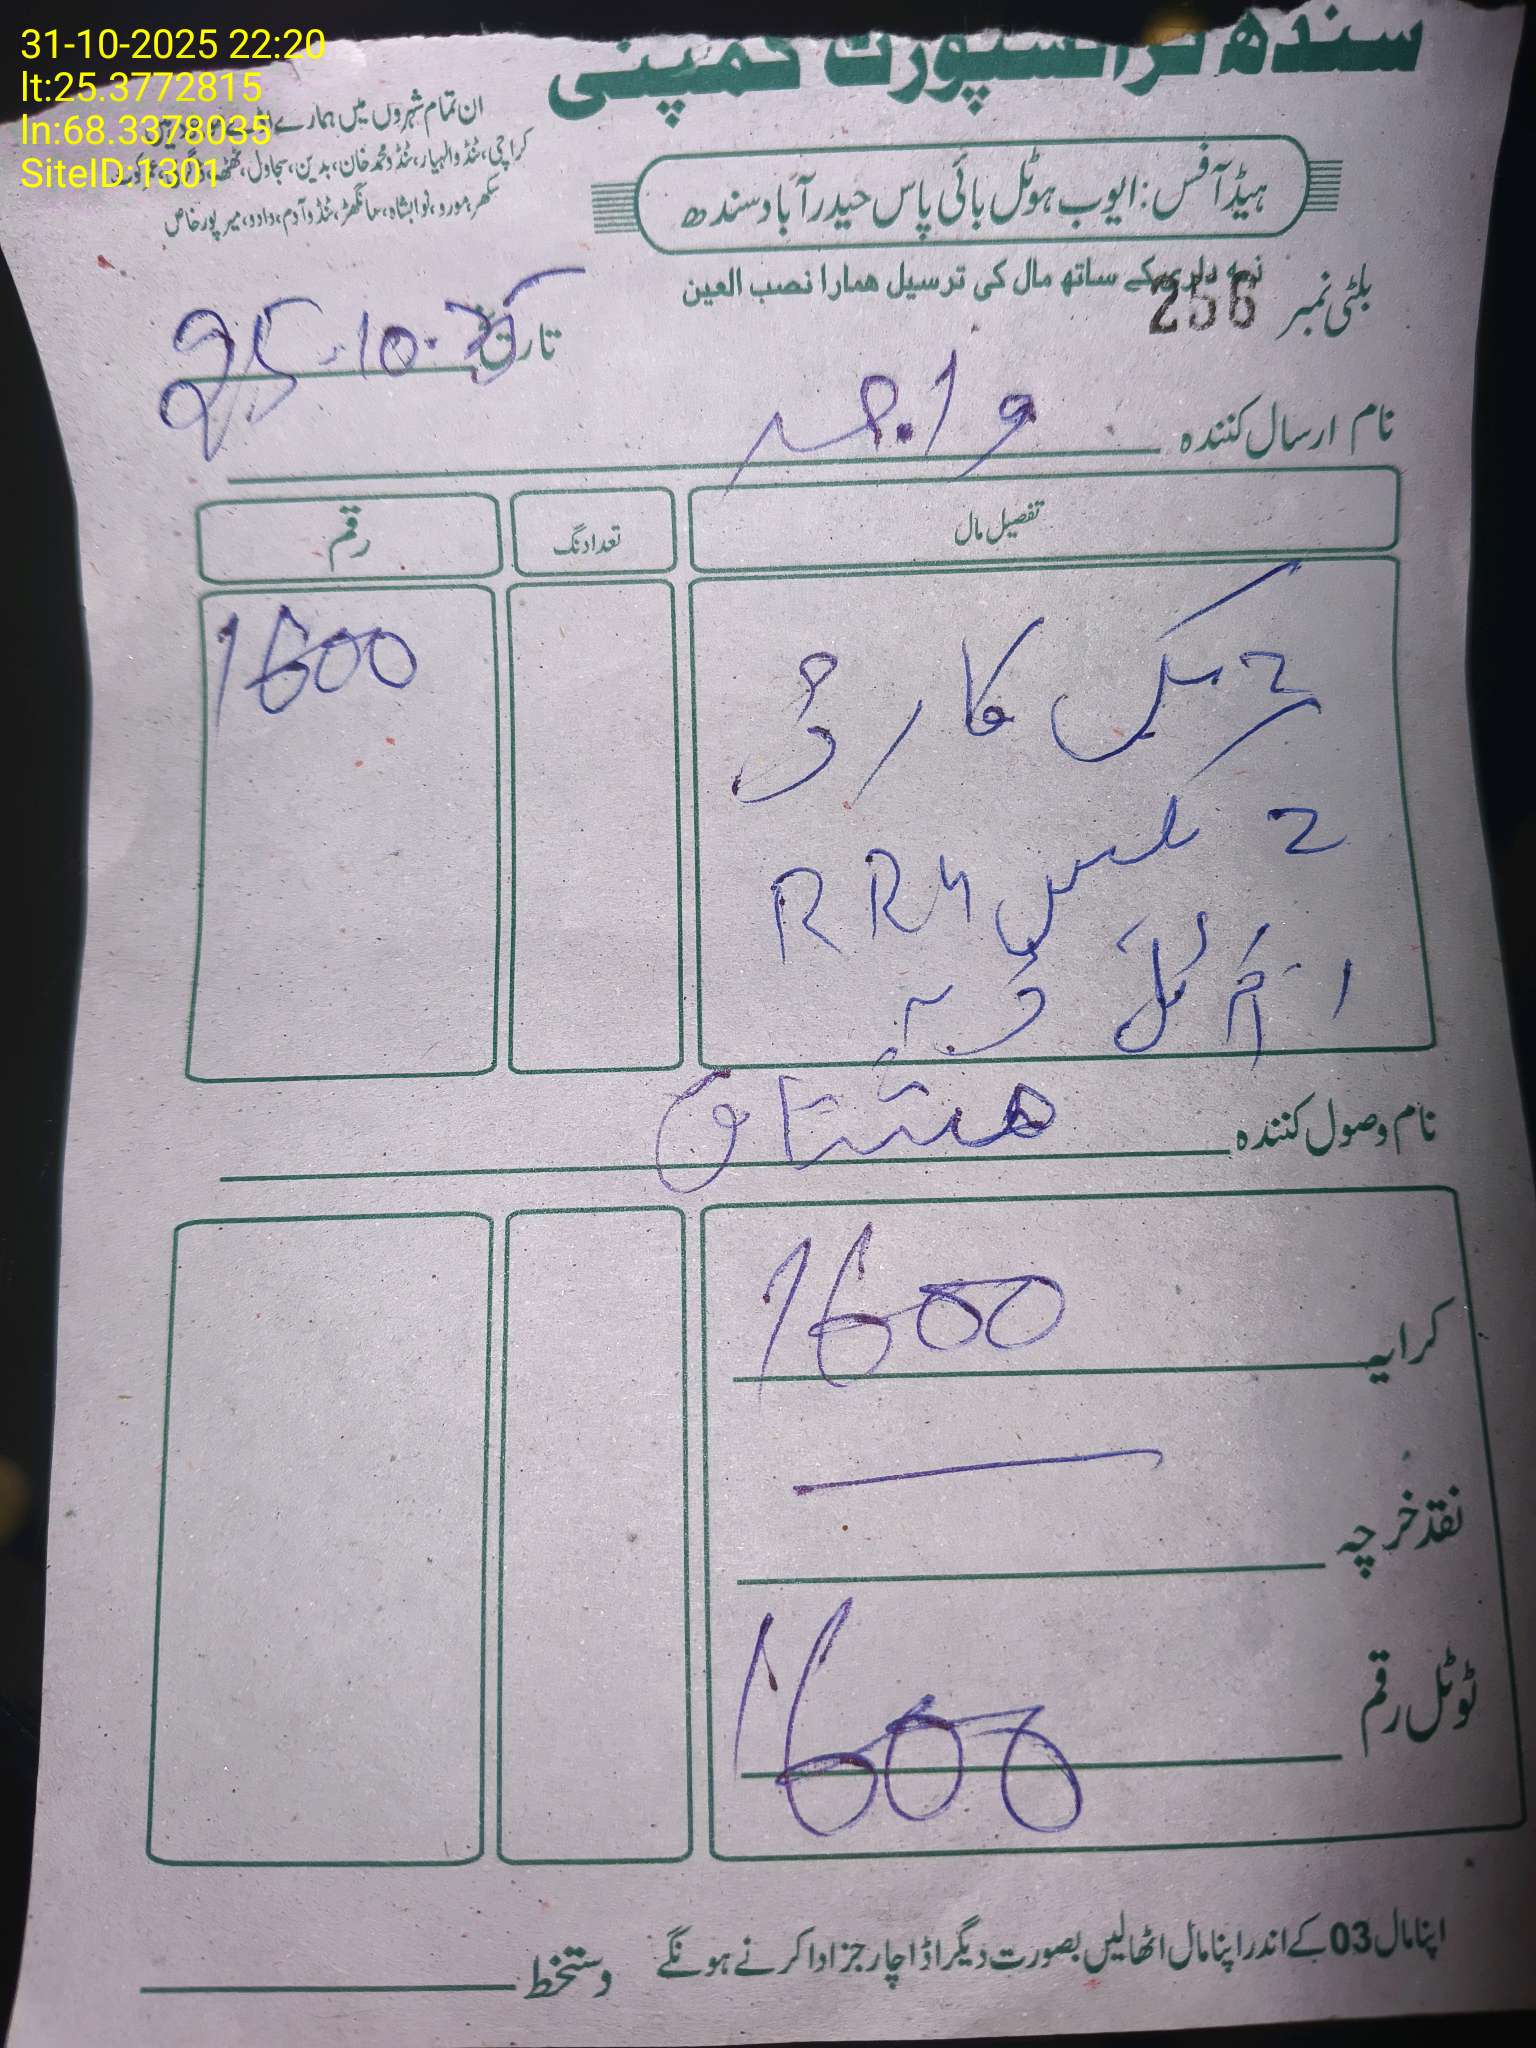 31-10-2025 22:20
lt:25.3772815
ln:68.3378035
SiteID:1301
سندھ ٹرانسپورٹ کمپنی
ان تمام شہروں میں ہمارے
کراچی، ٹنڈوالہیار، ٹنڈو محمد خان، بدین، سجاول، ٹھٹھہ
سکھر، مورو، نوابشاہ، سانگھڑ، ٹنڈوآدم، دادو، میرپورخاص
ہیڈ آفس: ایوب ہوٹل بائی پاس حیدرآباد سندھ
ذمہ داری کے ساتھ مال کی ترسیل ہمارا نصب العین
بلٹی نمبر 256
تاریخ 25-10-25
نام ارسال کنندہ
تفصیل مال تعداد نگ رقم
کارڈ 1600
2 بکس RRU
نام وصول کنندہ مشتاق
کرایہ 1600
نقد خرچہ
ٹوٹل رقم 1600
اپنا مال 03 کے اندر اپنا مال اٹھالیں بصورت دیگر اڈا چارجز ادا کرنے ہونگے
دستخط